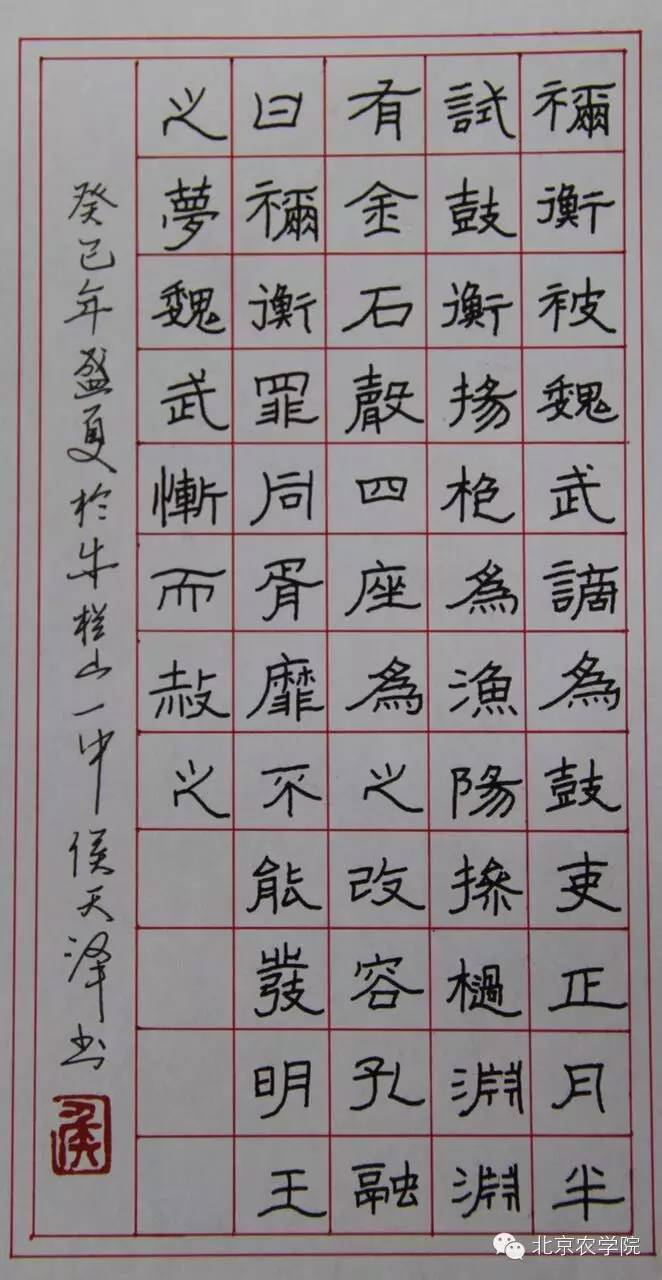 禰衡被魏武謫為鼓吏正月半
試鼓衡揚枹為漁陽摻檛淵淵
有金石聲四座為之改容孔融
曰禰衡罪同胥靡不能發明王
之夢魏武慚而赦之
癸巳年盛夏於牛栏山一中侯天泽书
侯
北京农学院